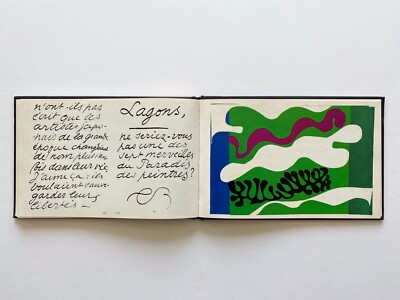 n'ont-ils pas
écrit que des
artistes japo-
nais de la grande
époque changeaient
de nom plusieurs
fois dans leur vie.
J'aime ça : ils
voulaient sauve-
garder leurs
libertés —
Lagons,
ne seriez-vous
pas une des
sept merveilles
du Paradis
des peintres ?